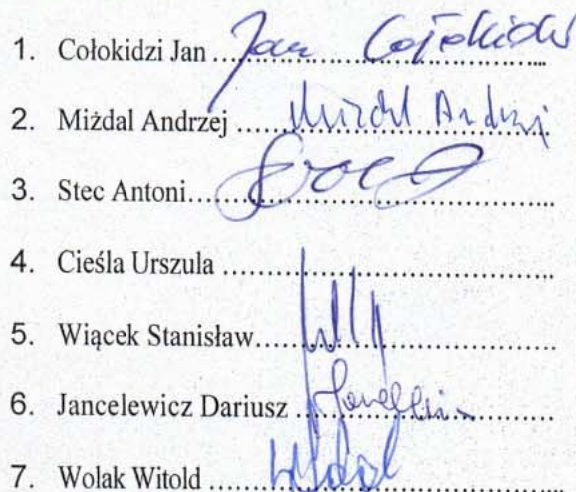 1. Cołokidzi Jan .......... Jan Cołokidzi
2. Miżdal Andrzej .......... Miżdal Andrzej
3. Stec Antoni..........
4. Cieśla Urszula ..........
5. Wiącek Stanisław..........
6. Jancelewicz Dariusz ..........
7. Wolak Witold ..........